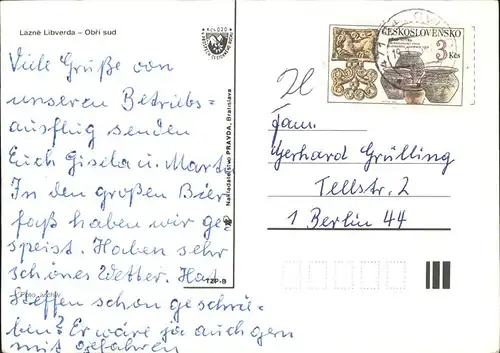 Lazně Libverda – Obří sud
Viele Grüße von
unseren Betriebs-
ausflug senden
Euch Gisela u. Mart
In den großen Bier
faß haben wir ge
speist. Haben sehr
schönes Wetter. Hat
Steffen schon geschrie
ben? Er wäre ja auch gern
mit gefahren
Foto archiv
Nakladatelstvo PRAVDA, Bratislava
TZP-B
Kčs 0,20
ČESKOSLOVENSKO
3 Kčs
Fam.
Gerhard Grülling
Tellstr. 2
1 Berlin 44